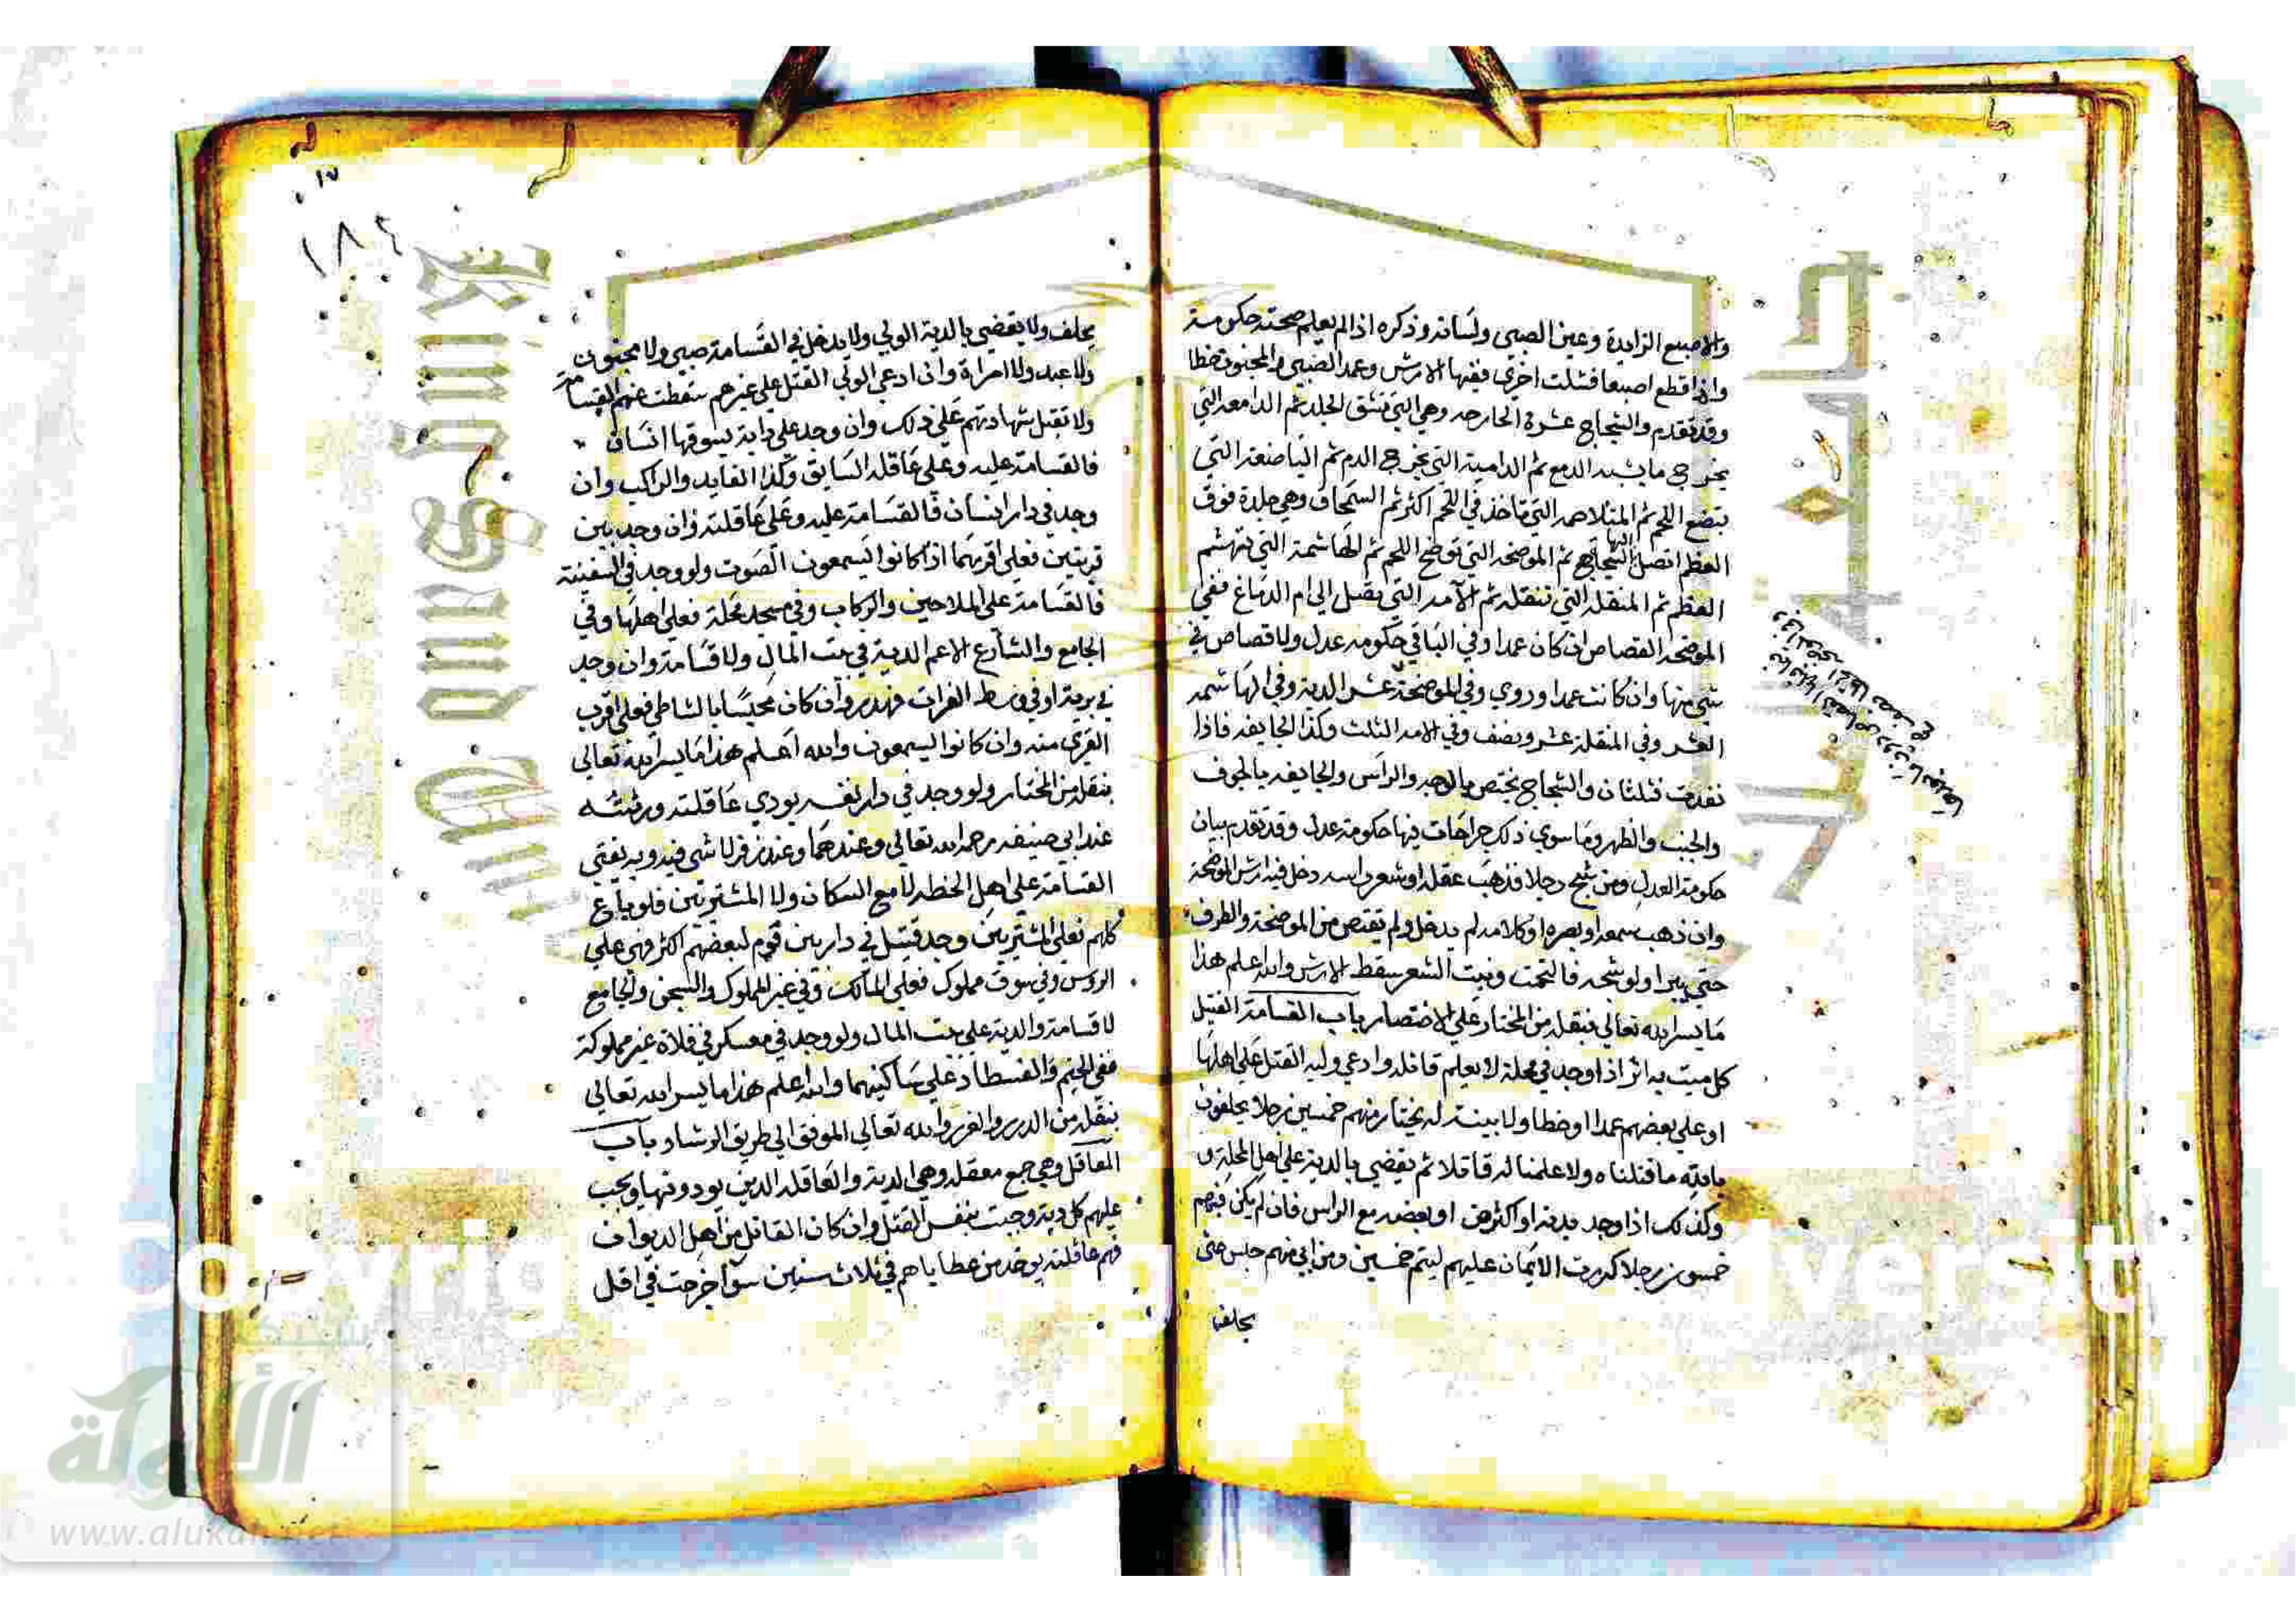 والاصبع الزايدة وعين الصبي ولسانه وذكره اذا لم يعلم صحته حكومة
واذا قطع اصبعا فشلت اخري ففيها الارش وعمد الصبي والمجنون خطا
وقد تقدم والشجاج عشرة الحارصه وهي التي تشق الجلد ثم الدامعه التي
يخرج ما يشبه الدمع ثم الدامية التي يخرج الدم ثم الباضعة التي
تبضع اللحم ثم المتلاحمه التي تاخذ في اللحم اكثر ثم السمحاق وهي جلدة فوق
العظم اتصل اليها الشجاج ثم الموضحه التي توضح اللحم ثم الهاشمة التي تهشم
العظم ثم المنقله التي تنقله ثم الآمه التي تصل الي ام الدماغ ففي
الموضحه القصاص ان كان عمدا وفي الباقي حكومه عدل ولا قصاص في
شي منها وان كانت عمدا وروي وفي الموضحة عشر الدية وفي الهاشمه
العشر وفي المنقلة عشر ونصف وفي الامه الثلث وكذا الجايفه فاذا
نفذت فثلثان والشجاج تختص بالوجه والراس والجايفه بالجوف
والجنب والظهر وما سوي ذلك جراحات فيها حكومة عدل وقد تقدم بيان
حكومة العدل ومن شج رجلا فذهب عقله او شعر راسه دخل فيه ارش الموضحة
وان ذهب سمعه او بصره او كلامه لم يدخل ولم يقتص من الموضحة والطرف
حتي يبرا ولو شجه فالتحمت ونبت الشعر سقط الارش والله اعلم هذا
ما يسر الله تعالي بنقله من المختار علي الاختصار باب القسامة القتيل
كل ميت به اثر اذا وجد في محلة لا يعلم قاتله وادعي وليه القتل علي اهلها
او علي بعضهم عمدا او خطا ولا بينة له يختار منهم خمسين رجلا يحلفون
بالله ما قتلناه ولا علمنا له قاتلا ثم يقضي بالدية علي اهل المحلة و
وكذلك اذا وجد بدنه او اكثره او بعضه مع الراس فان لم يكن فيهم
خمسون رجلا كررت الايمان عليهم ليتم خمسين ومن ابي منهم حبس حتي
يحلف
١٨٤
يحلف ولا يقضي بالدية الولي ولا يدخل في القسامة صبي ولا مجنون
ولا عبد ولا امراة وان ادعي الولي القتل علي غيرهم سقطت عنهم القسامة
ولا تقبل شهادتهم علي ذلك وان وجد علي دابة يسوقها انسان
فالقسامة عليه وعلي عاقله السايق وكذا القايد والراكب وان
وجد في دار انسان فالقسامة عليه وعلي عاقلته وان وجد بين
قريتين فعلي اقربهما اذا كانوا يسمعون الصوت ولو وجد في السفينة
فالقسامة علي الملاحين والركاب وفي مسجد محلة فعلي اهلها وفي
الجامع والشارع الاعم الدية في بيت المال ولا قسامة وان وجد
في برية او في وسط الفرات فهدر وان كان محبسا بالشاطي فعلي اقرب
القري منه وان كانوا يسمعون والله اعلم هذا ما يسر الله تعالي
بنقله من المختار ولو وجد في دار نفسه يودي عاقلته ورثته
عند ابي حنيفه رحمه الله تعالي وعندهما وعند زفر لا شي فيه وبه يفتي
القسامة علي اهل الخطه لا مع السكان ولا المشتريين فلو باع
كلهم فعلي المشتريين وجد قتيل في دار بين قوم لبعضهم اكثر فهي علي
الروس وفي سوق مملوك فعلي المالك وفي غير المملوك والسجن والجامع
لا قسامة والدية علي بيت المال ولو وجد في معسكر في فلاة غير مملوكة
ففي الخيم والفسطاط علي ساكنيهما والله اعلم هذا ما يسر الله تعالي
بنقله من الدرر والغرر والله تعالي الموفق الي طريق الرشاد باب
المعاقل وهي جمع معقله وهي الدية والعاقله الذين يودونها ويجب
عليهم كل دية وجبت بنفس القتل وان كان القاتل من اهل الديوان
فهم عاقلته يوخذ من عطاياهم في ثلاث سنين سوا خرجت في اقل
شبكة
الألوكة
www.alukah.net